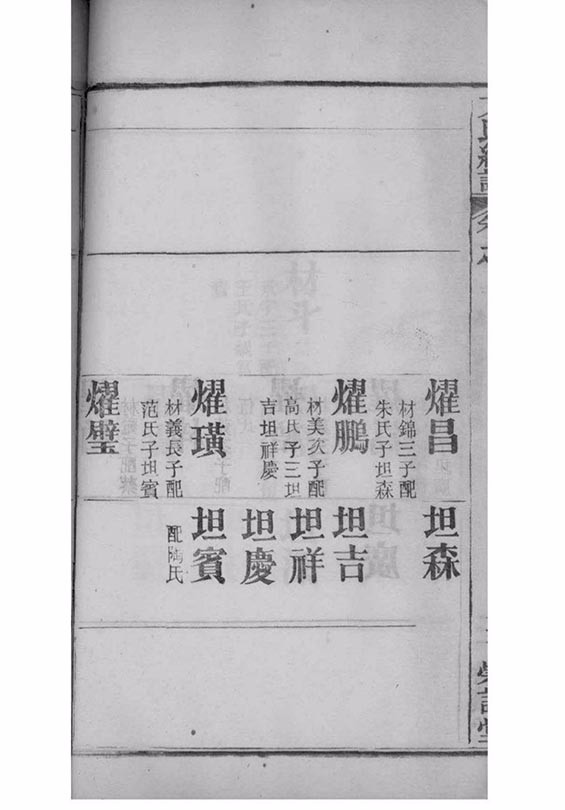 燿昌
材錦三子配
朱氏子坦森
燿鵬
材美次子配
高氏子三坦
吉坦祥慶
燿璜
材義長子配
范氏子坦賓
燿璧
坦森
坦吉
坦祥
坦慶
坦賓
配陶氏